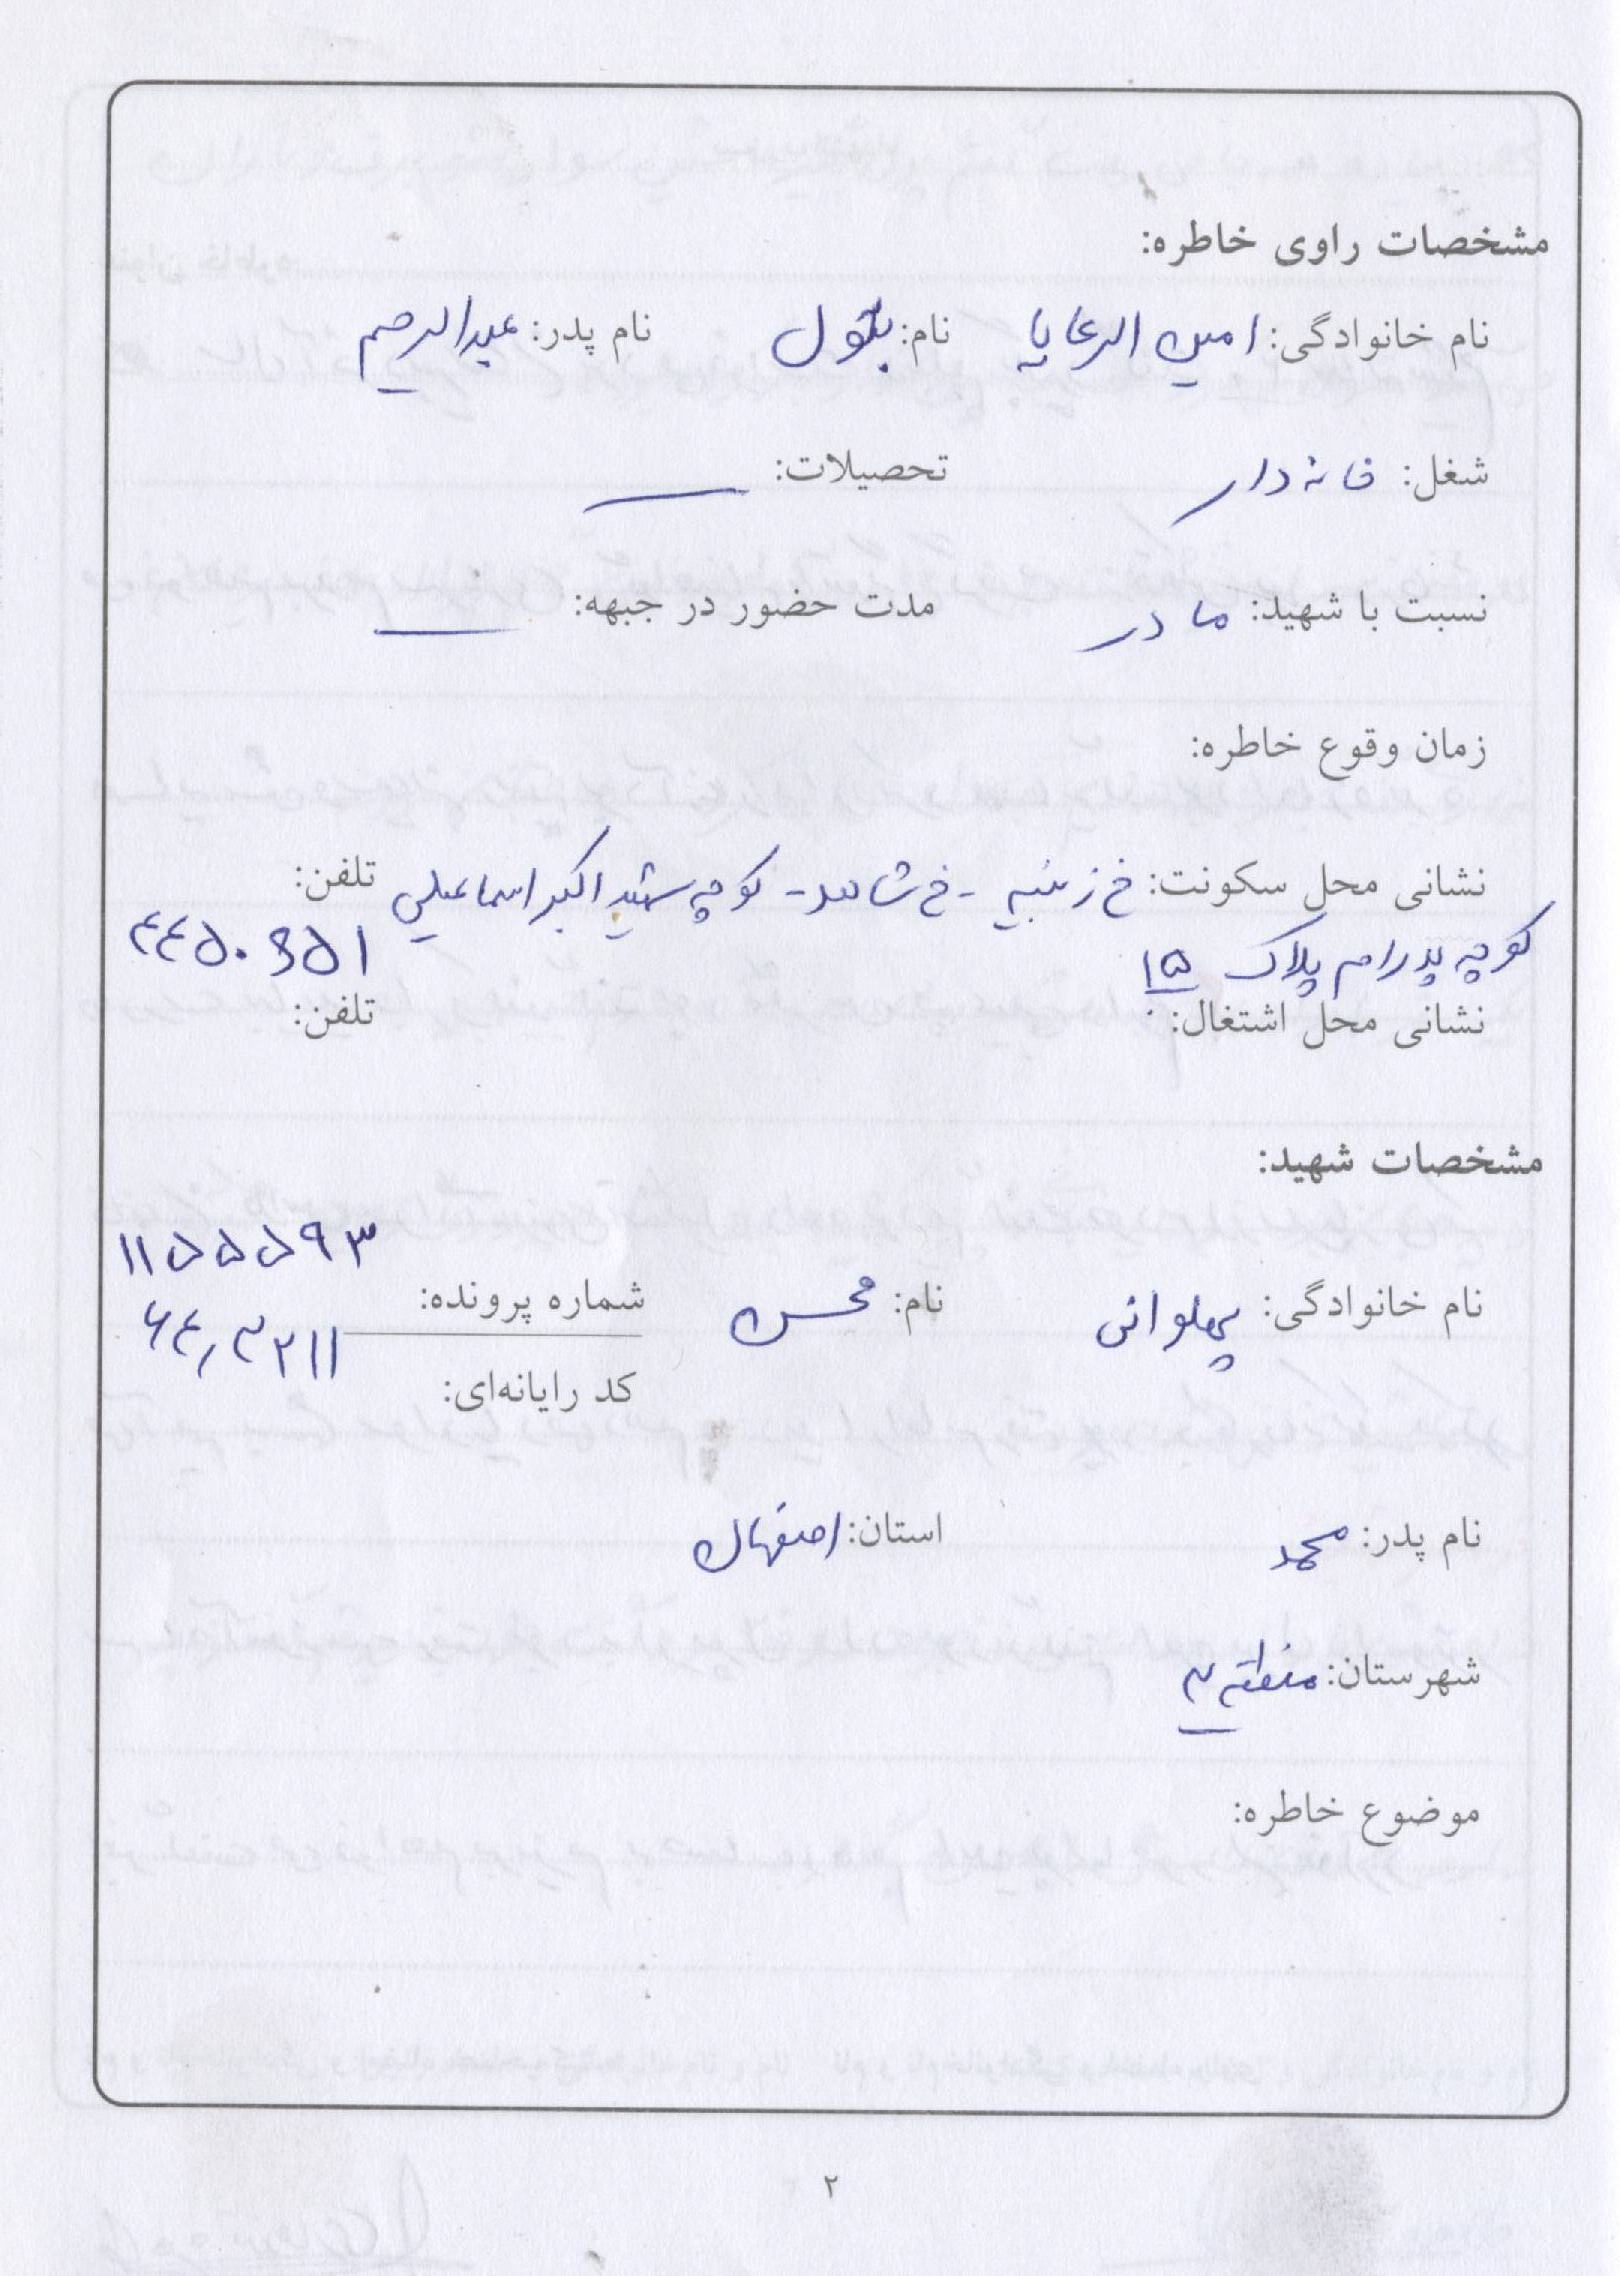 مشخصات راوی خاطره:
نام خانوادگی: امین الرعایا نام: بتول نام پدر: عبدالرحیم
شغل: خانه دار تحصیلات: —
نسبت با شهید: مادر مدت حضور در جبهه: —
زمان وقوع خاطره:
نشانی محل سکونت: خ زینبیه - خ شاهد - کوچه شهید اکبر اسماعیلی تلفن:
کوچه پدرام پلاک ۱۵
نشانی محل اشتغال: تلفن:
مشخصات شهید:
۱۱۵۵۵۹۳
نام خانوادگی: پهلوانی نام: محسن شماره پرونده:
کد رایانه‌ای:
نام پدر: محمد استان: اصفهان
شهرستان: منطقه
موضوع خاطره:
۲